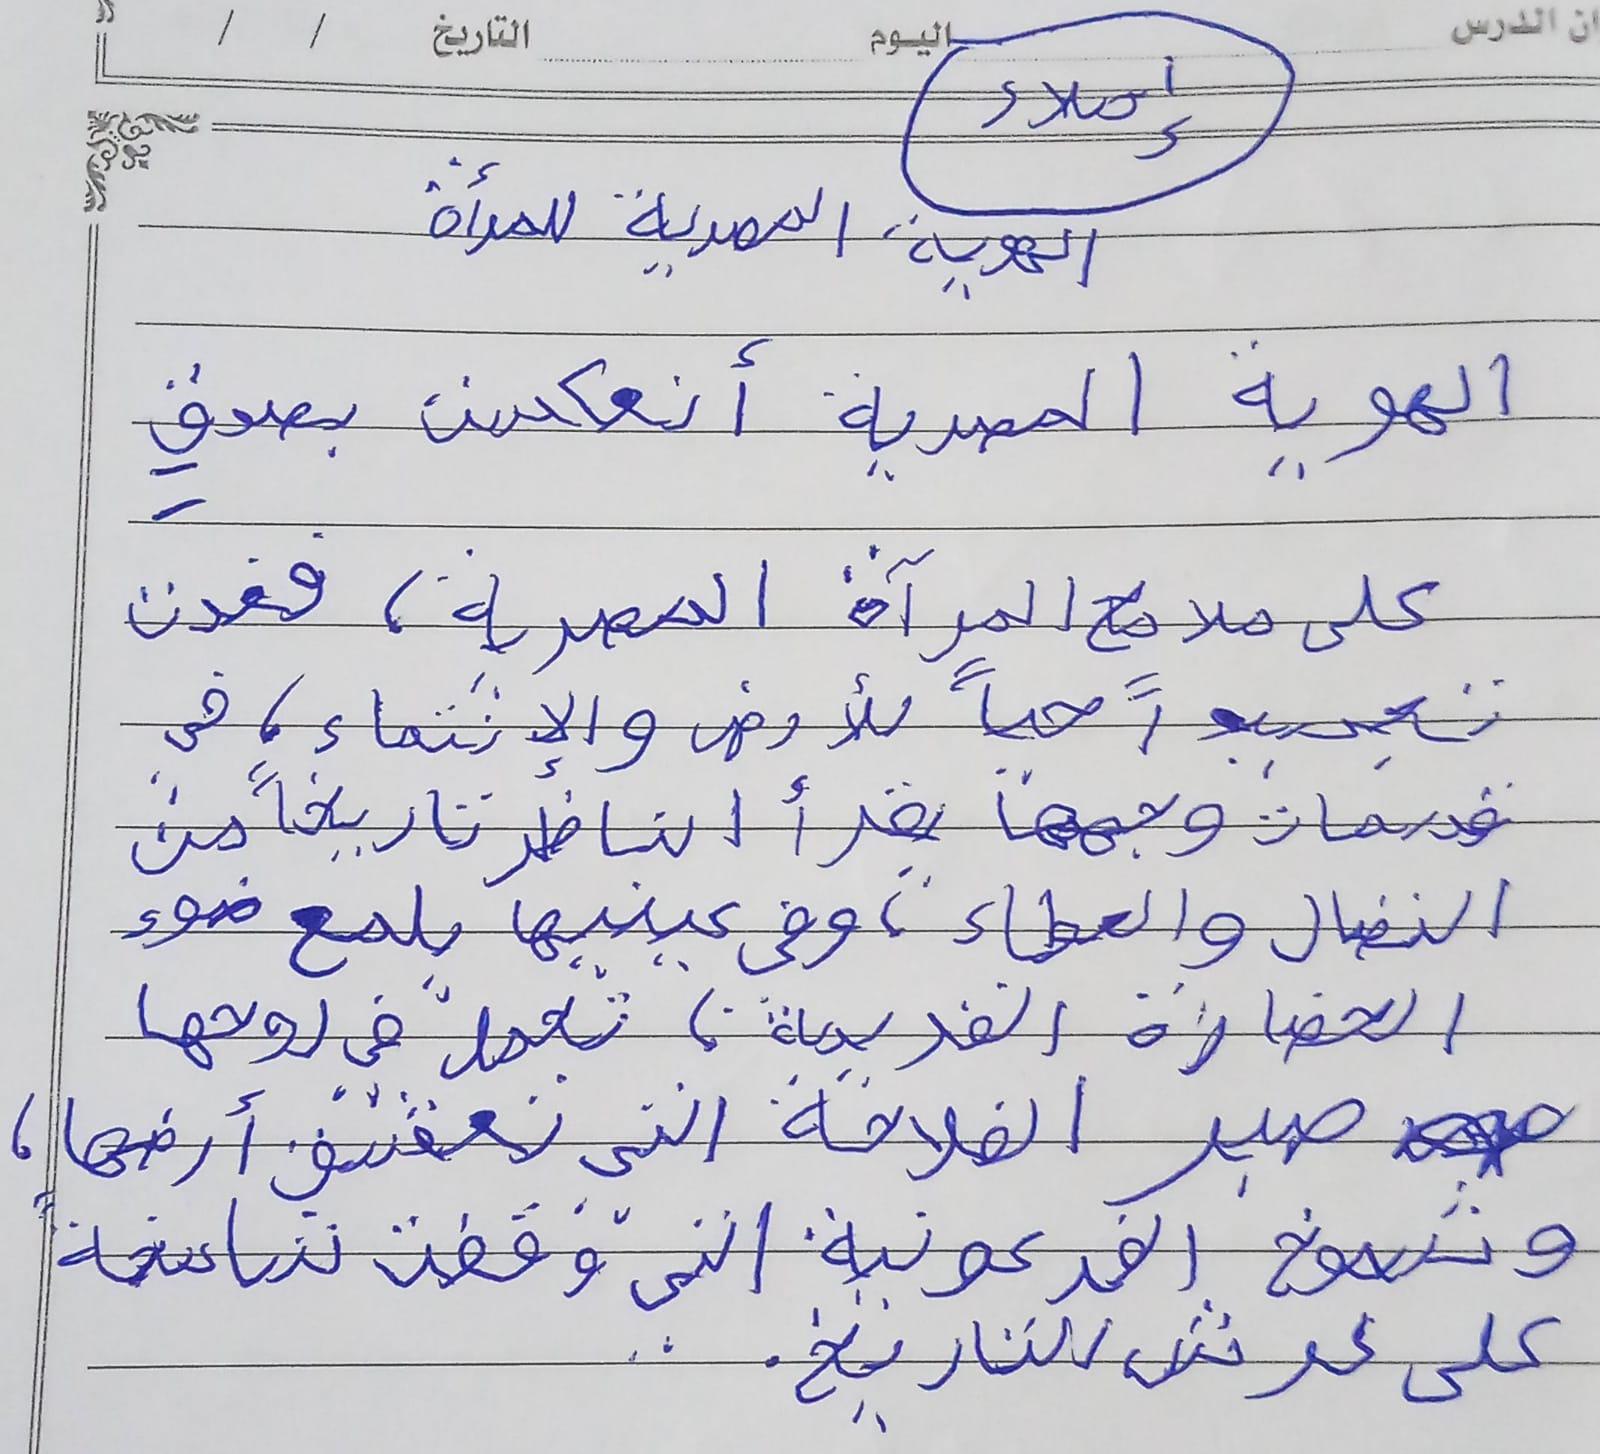 ان الدرس اليوم التاريخ / /
إملاء
الهوية المصرية للمرأة
الهوية المصرية أنعكست بصدقٍ
على ملامح المرآة المصرية، فغدت
تجسيداً حياً للأرض والإنتماء، فى
قسمات وجهها يقرأ الناظر تاريخاً من
النضال والعطاء، وفى عينيها يلمع ضوء
الحضارة القديمة، تحمل فى روحها
صبر الفلاحة التى تعشق أرضها،
وشموخ الفرعونية التى وقفت شامخة
على عرش التاريخ.